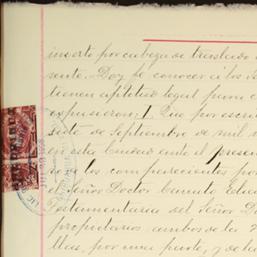 inserto por cabeza de traslado
sente. Doy fe conocer a los
tienen aptitud legal para
expusieron: 1 Que por escri
de Septiembre de mil
en esta Ciudad ante el presen
los comparecientes por
el Señor Doctor
Testamentaria del Señor D
propietarios ambos de la
llas, por una parte, y de la